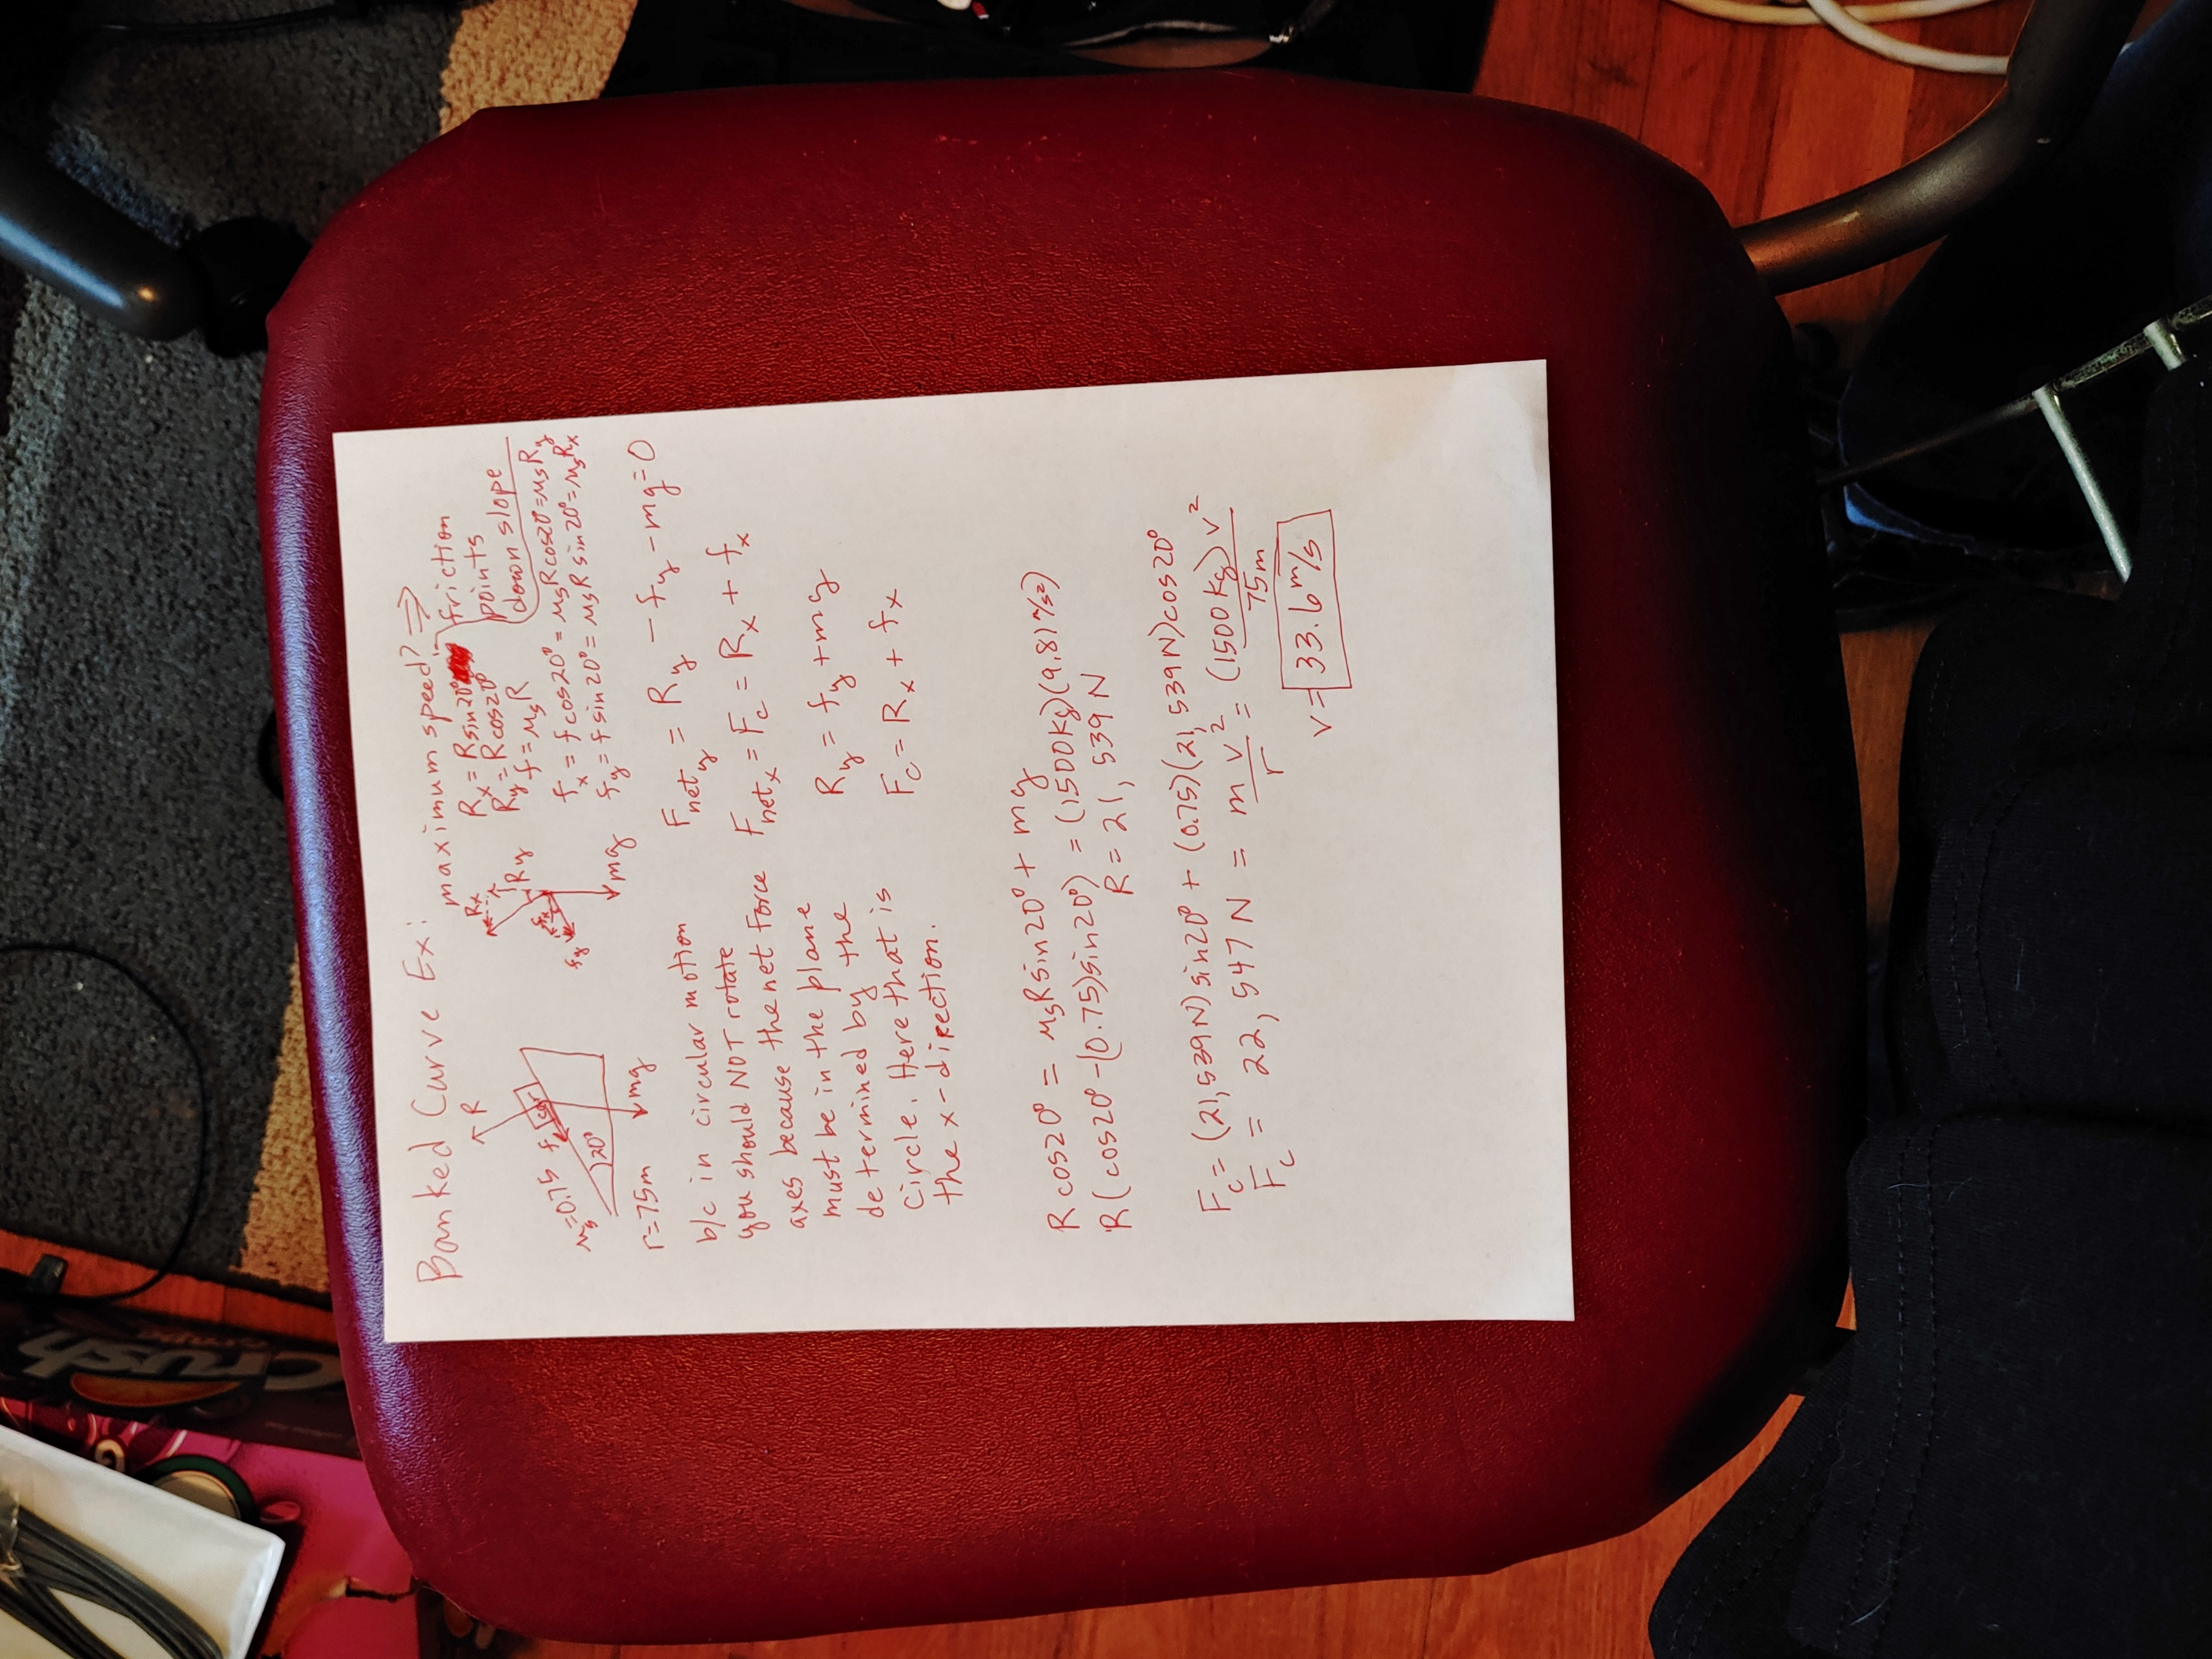 Banked Curve Ex:
maximum speed? ⇒
friction
points
down slope
R
μs=0.75
f
car
20°
mg
r=75m
Rx
Ry
fx
fy
mg
Rx = R sin20°
Ry = R cos20°
f = μsR
fx = f cos20° = μsR cos20° = μsRy
fy = f sin20° = μsR sin20° = μsRx
b/c in circular motion
you should NOT rotate
axes because the net force
must be in the plane
determined by the
circle. Here that is
the x-direction.
Fnety = Ry − fy − mg = 0
Fnetx = Fc = Rx + fx
Ry = fy + mg
Fc = Rx + fx
R cos20° = μsR sin20° + mg
R(cos20° − (0.75)sin20°) = (1500kg)(9.81m/s²)
R = 21,539N
Fc = (21,539N) sin20° + (0.75)(21,539N)cos20°
Fc = 22,547N = m v²/r = (1500kg)v²/75m
v = 33.6 m/s
Crush